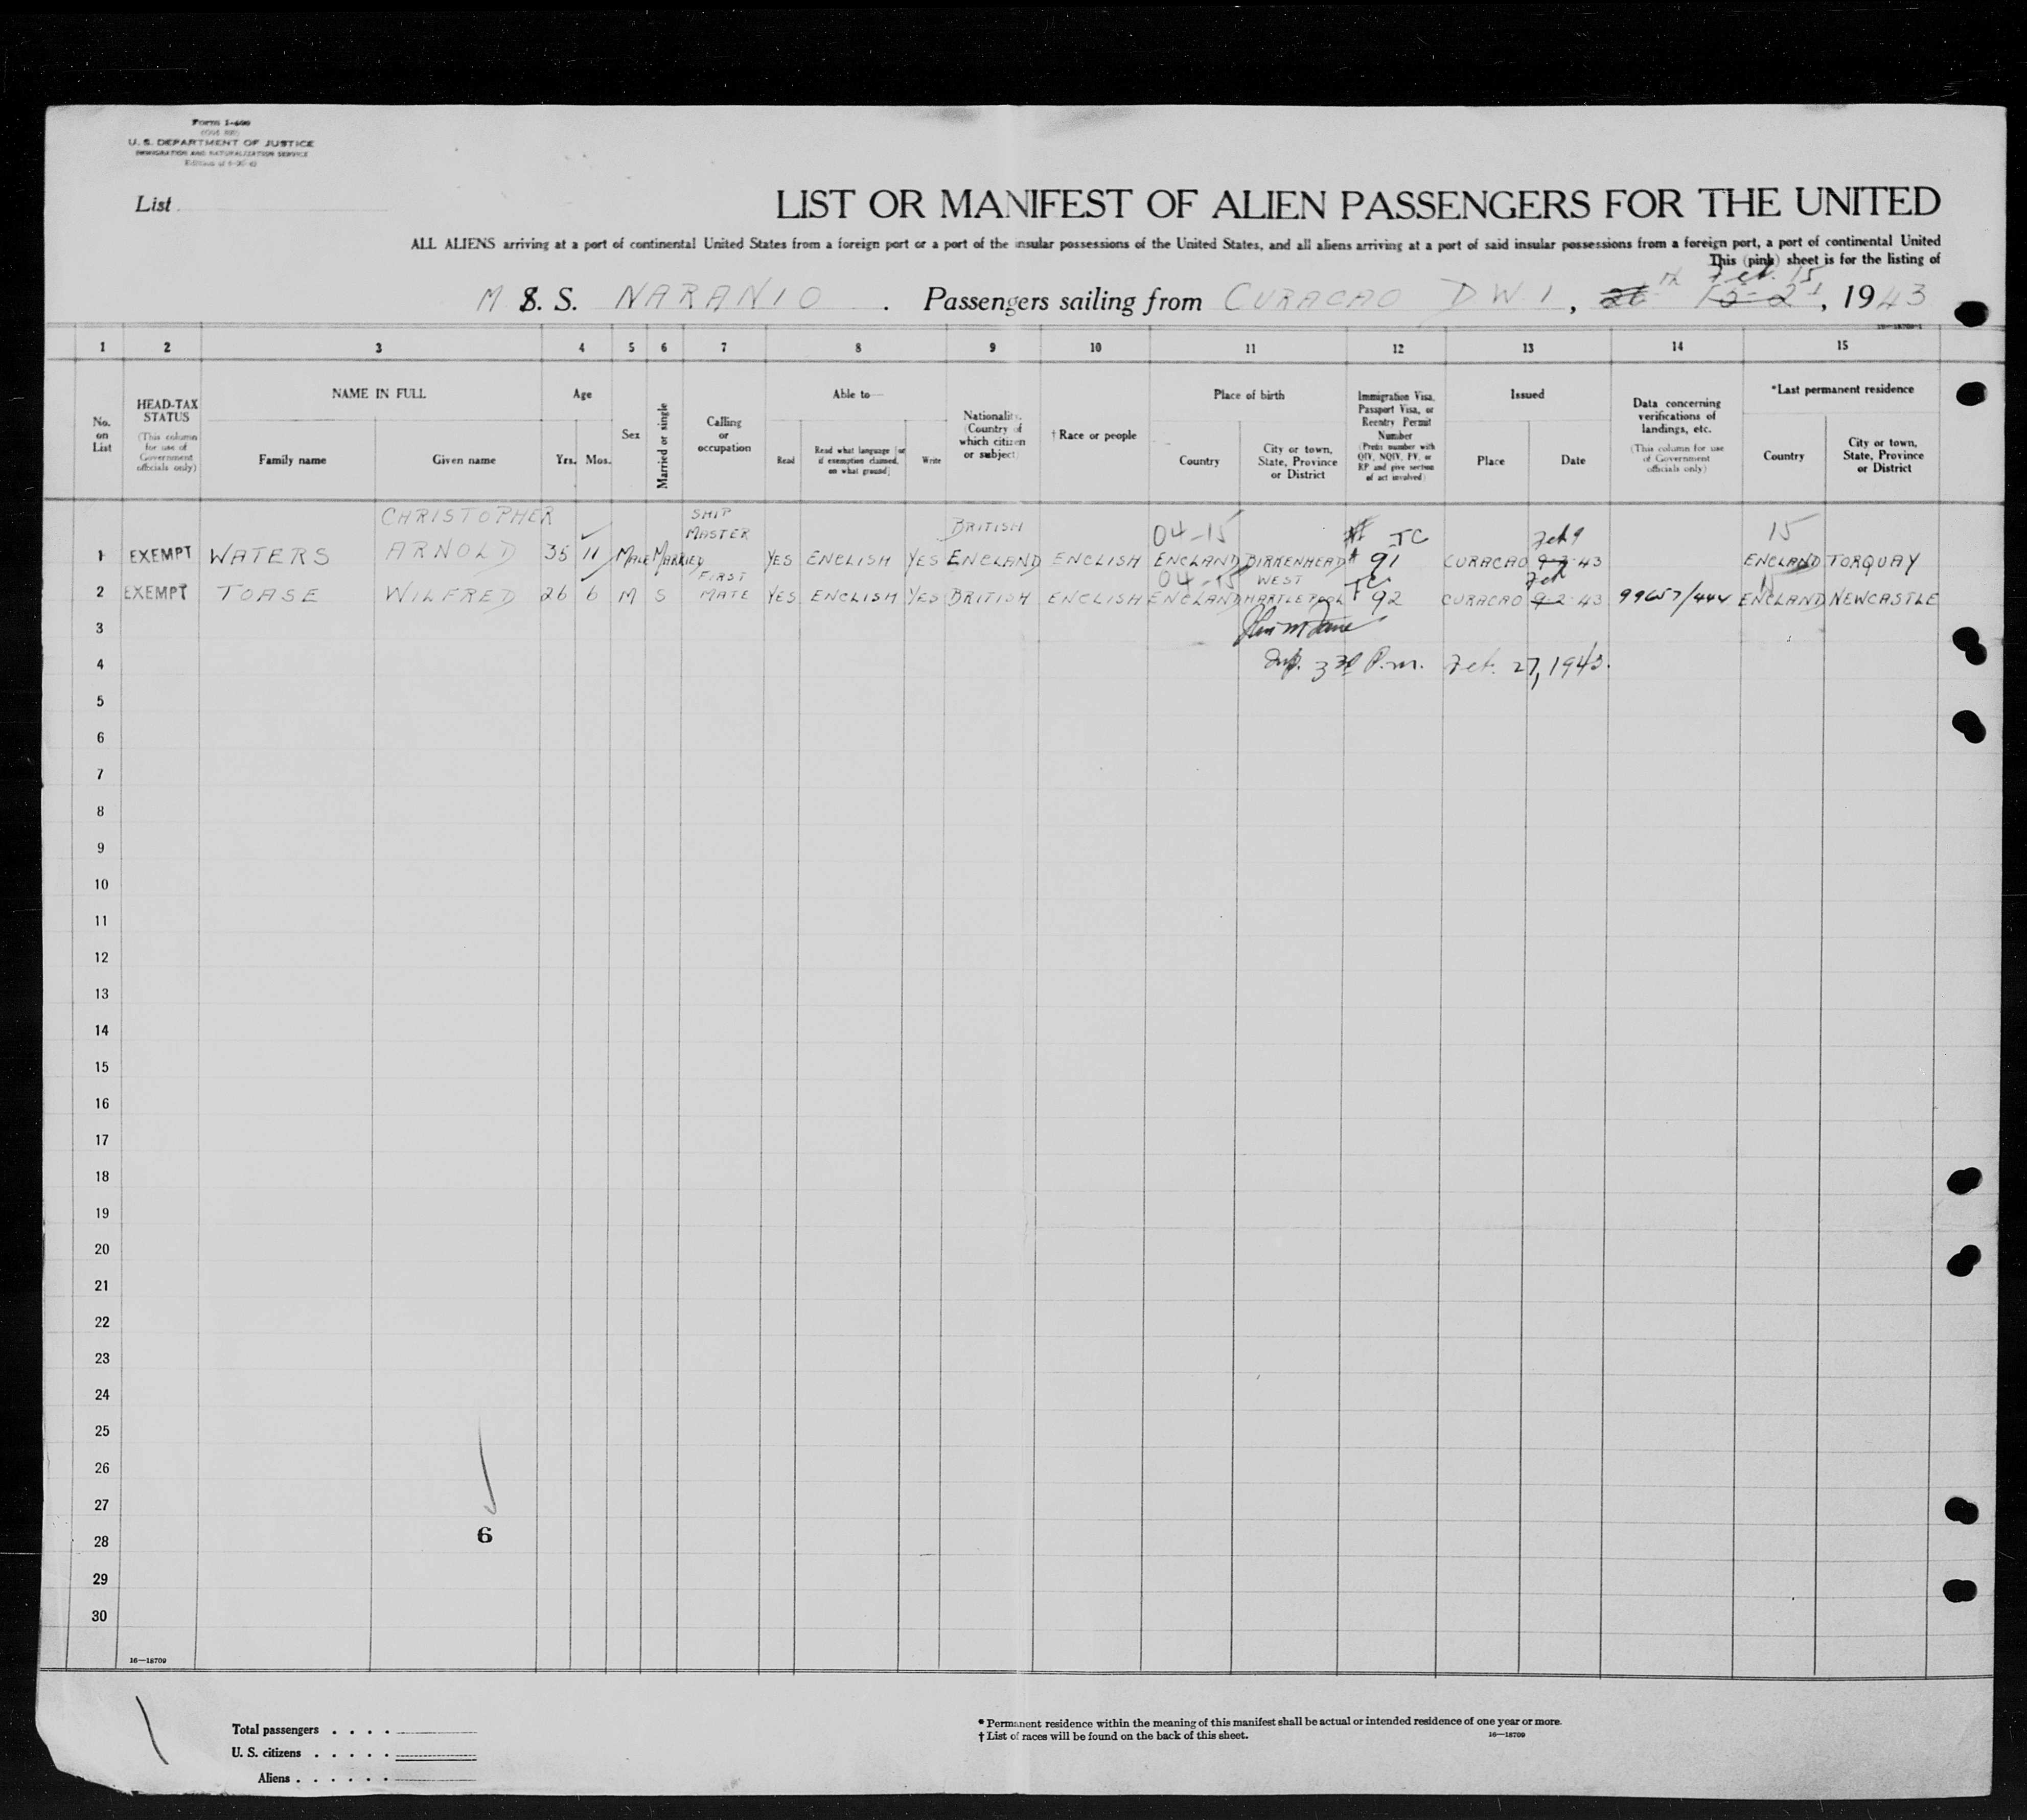 Form I-400
U. S. DEPARTMENT OF JUSTICE
IMMIGRATION AND NATURALIZATION SERVICE
List
LIST OR MANIFEST OF ALIEN PASSENGERS FOR THE UNITED
ALL ALIENS arriving at a port of continental United States from a foreign port or a port of the insular possessions of the United States, and all aliens arriving at a port of said insular possessions from a foreign port, a port of continental United
This (pink) sheet is for the listing of
Feb. 15
M S. S. NARANIO . Passengers sailing from CURACAO D W I , 1943
16—18709-1
1 2 3 4 5 6 7 8 9 10 11 12 13 14 15
No. on List
HEAD-TAX STATUS
(This column for use of Government officials only)
NAME IN FULL
Family name
Given name
Age
Yrs. Mos.
Sex
Married or single
Calling or occupation
Able to—
Read
Read what language [or if exemption claimed, on what ground]
Write
Nationality. (Country of which citizen or subject)
†Race or people
Place of birth
Country
City or town, State, Province or District
Immigration Visa, Passport Visa, or Reentry Permit Number
(Prefix number with QIV, NQIV, PV, or RP and give section of act involved)
Issued
Place
Date
Data concerning verifications of landings, etc.
(This column for use of Government officials only)
*Last permanent residence
Country
City or town, State, Province or District
CHRISTOPHER SHIP MASTER BRITISH 04-15 Feb 9 15
1 EXEMPT WATERS ARNOLD 35 11 MALE MARRIED YES ENGLISH YES ENGLAND ENGLISH ENGLAND BIRKENHEAD 91 CURACAO 9-2-43 ENGLAND TORQUAY
FIRST 04-15 WEST Feb 15
2 EXEMPT TOASE WILFRED 26 6 M S MATE YES ENGLISH YES BRITISH ENGLISH ENGLAND HARTLEPOOL 92 CURACAO 9-2-43 99657/444 ENGLAND NEWCASTLE
3
4 3 30 P.m. Feb. 27, 1943.
5
6
7
8
9
10
11
12
13
14
15
16
17
18
19
20
21
22
23
24
25
26
27
6
28
29
30
16—18709
Total passengers . . . .
U. S. citizens . . . . .
Aliens . . . . . .
* Permanent residence within the meaning of this manifest shall be actual or intended residence of one year or more.
† List of races will be found on the back of this sheet.
16—18709